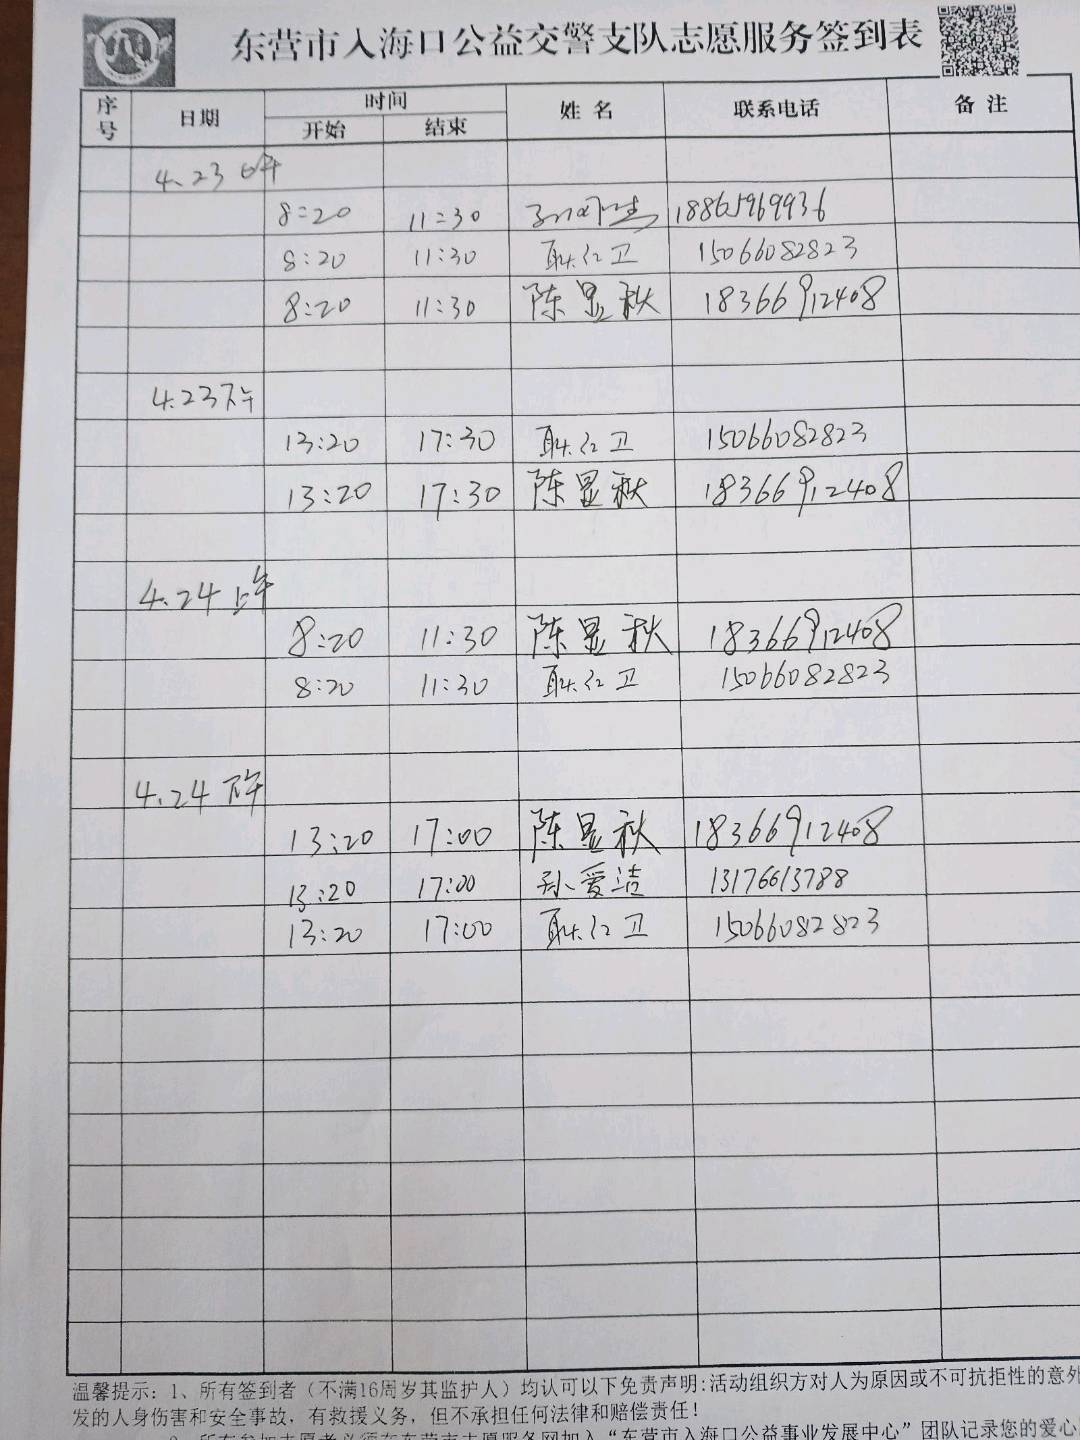 东营市入海口公益交警支队志愿服务签到表
序号 日期 时间 姓名 联系电话 备注
开始 结束
4.23 上午
8:20 11:30 18865969936
8:20 11:30 耿红卫 15066082823
8:20 11:30 陈显秋 18366912408
4.23下午
13:20 17:30 耿红卫 15066082823
13:20 17:30 陈显秋 18366912408
4.24 上午
8:20 11:30 陈显秋 18366912408
8:20 11:30 耿红卫 15066082823
4.24 下午
13:20 17:00 陈显秋 18366912408
13:20 17:00 孙爱洁 13176613788
13:20 17:00 耿红卫 15066082823
温馨提示：1、所有签到者（不满16周岁其监护人）均认可以下免责声明:活动组织方对人为原因或不可抗拒性的意外
发的人身伤害和安全事故，有救援义务，但不承担任何法律和赔偿责任！
2、所有参加志愿者必须在东营市志愿服务网加入“东营市入海口公益事业发展中心”团队记录您的爱心